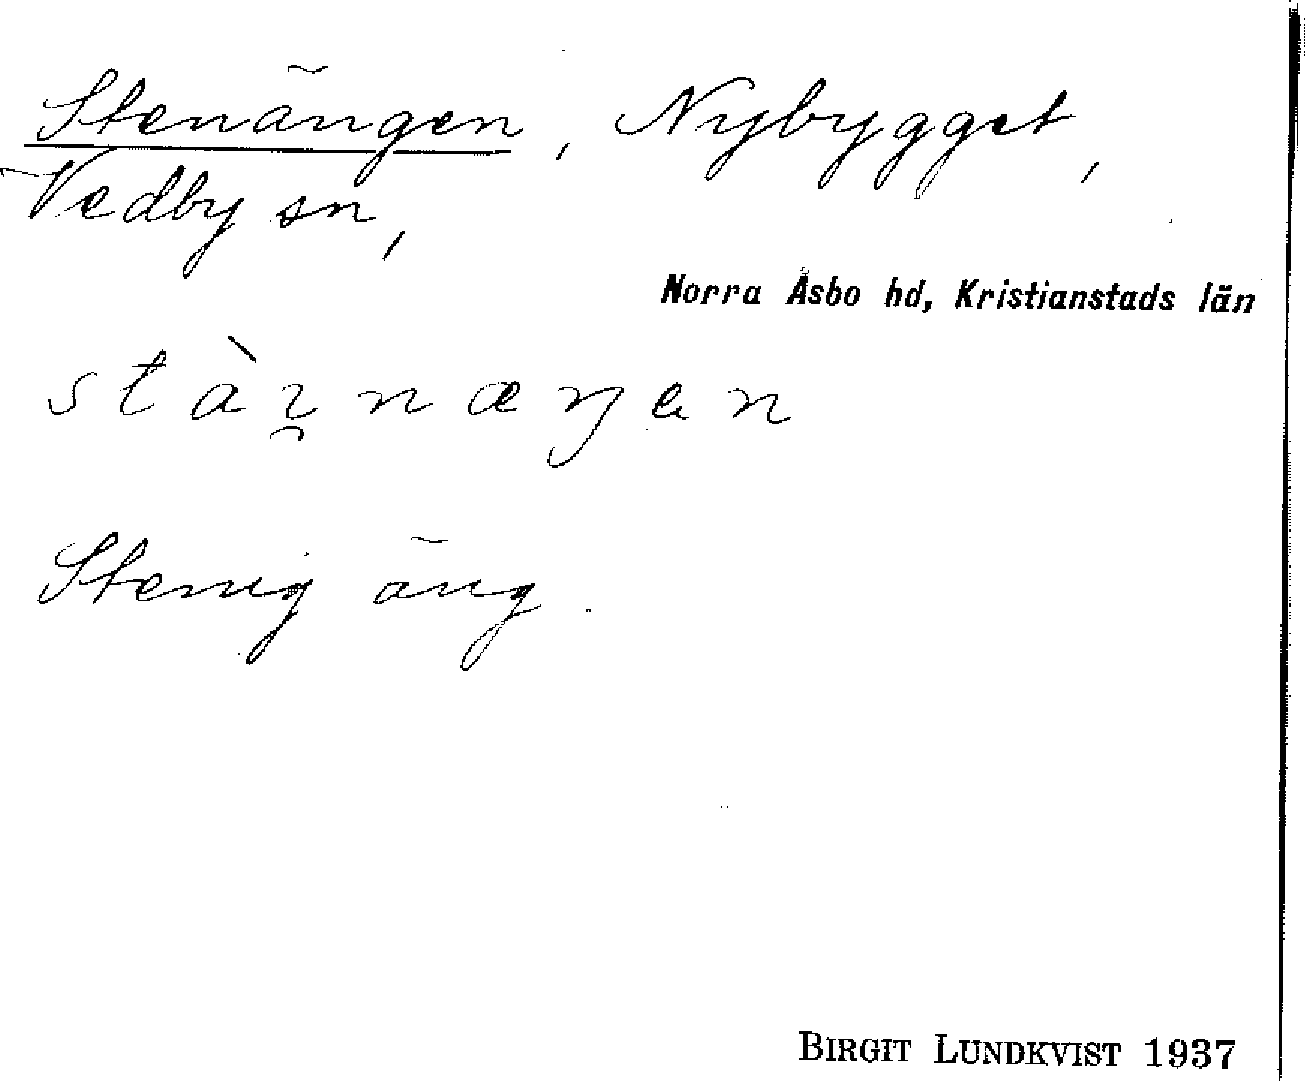 Stenängen, Nybygget,
Vedby sn,
Norra Åsbo hd, Kristianstads län
stàı̯næŋen
Stenig äng.
BIRGIT LUNDKVIST 1937